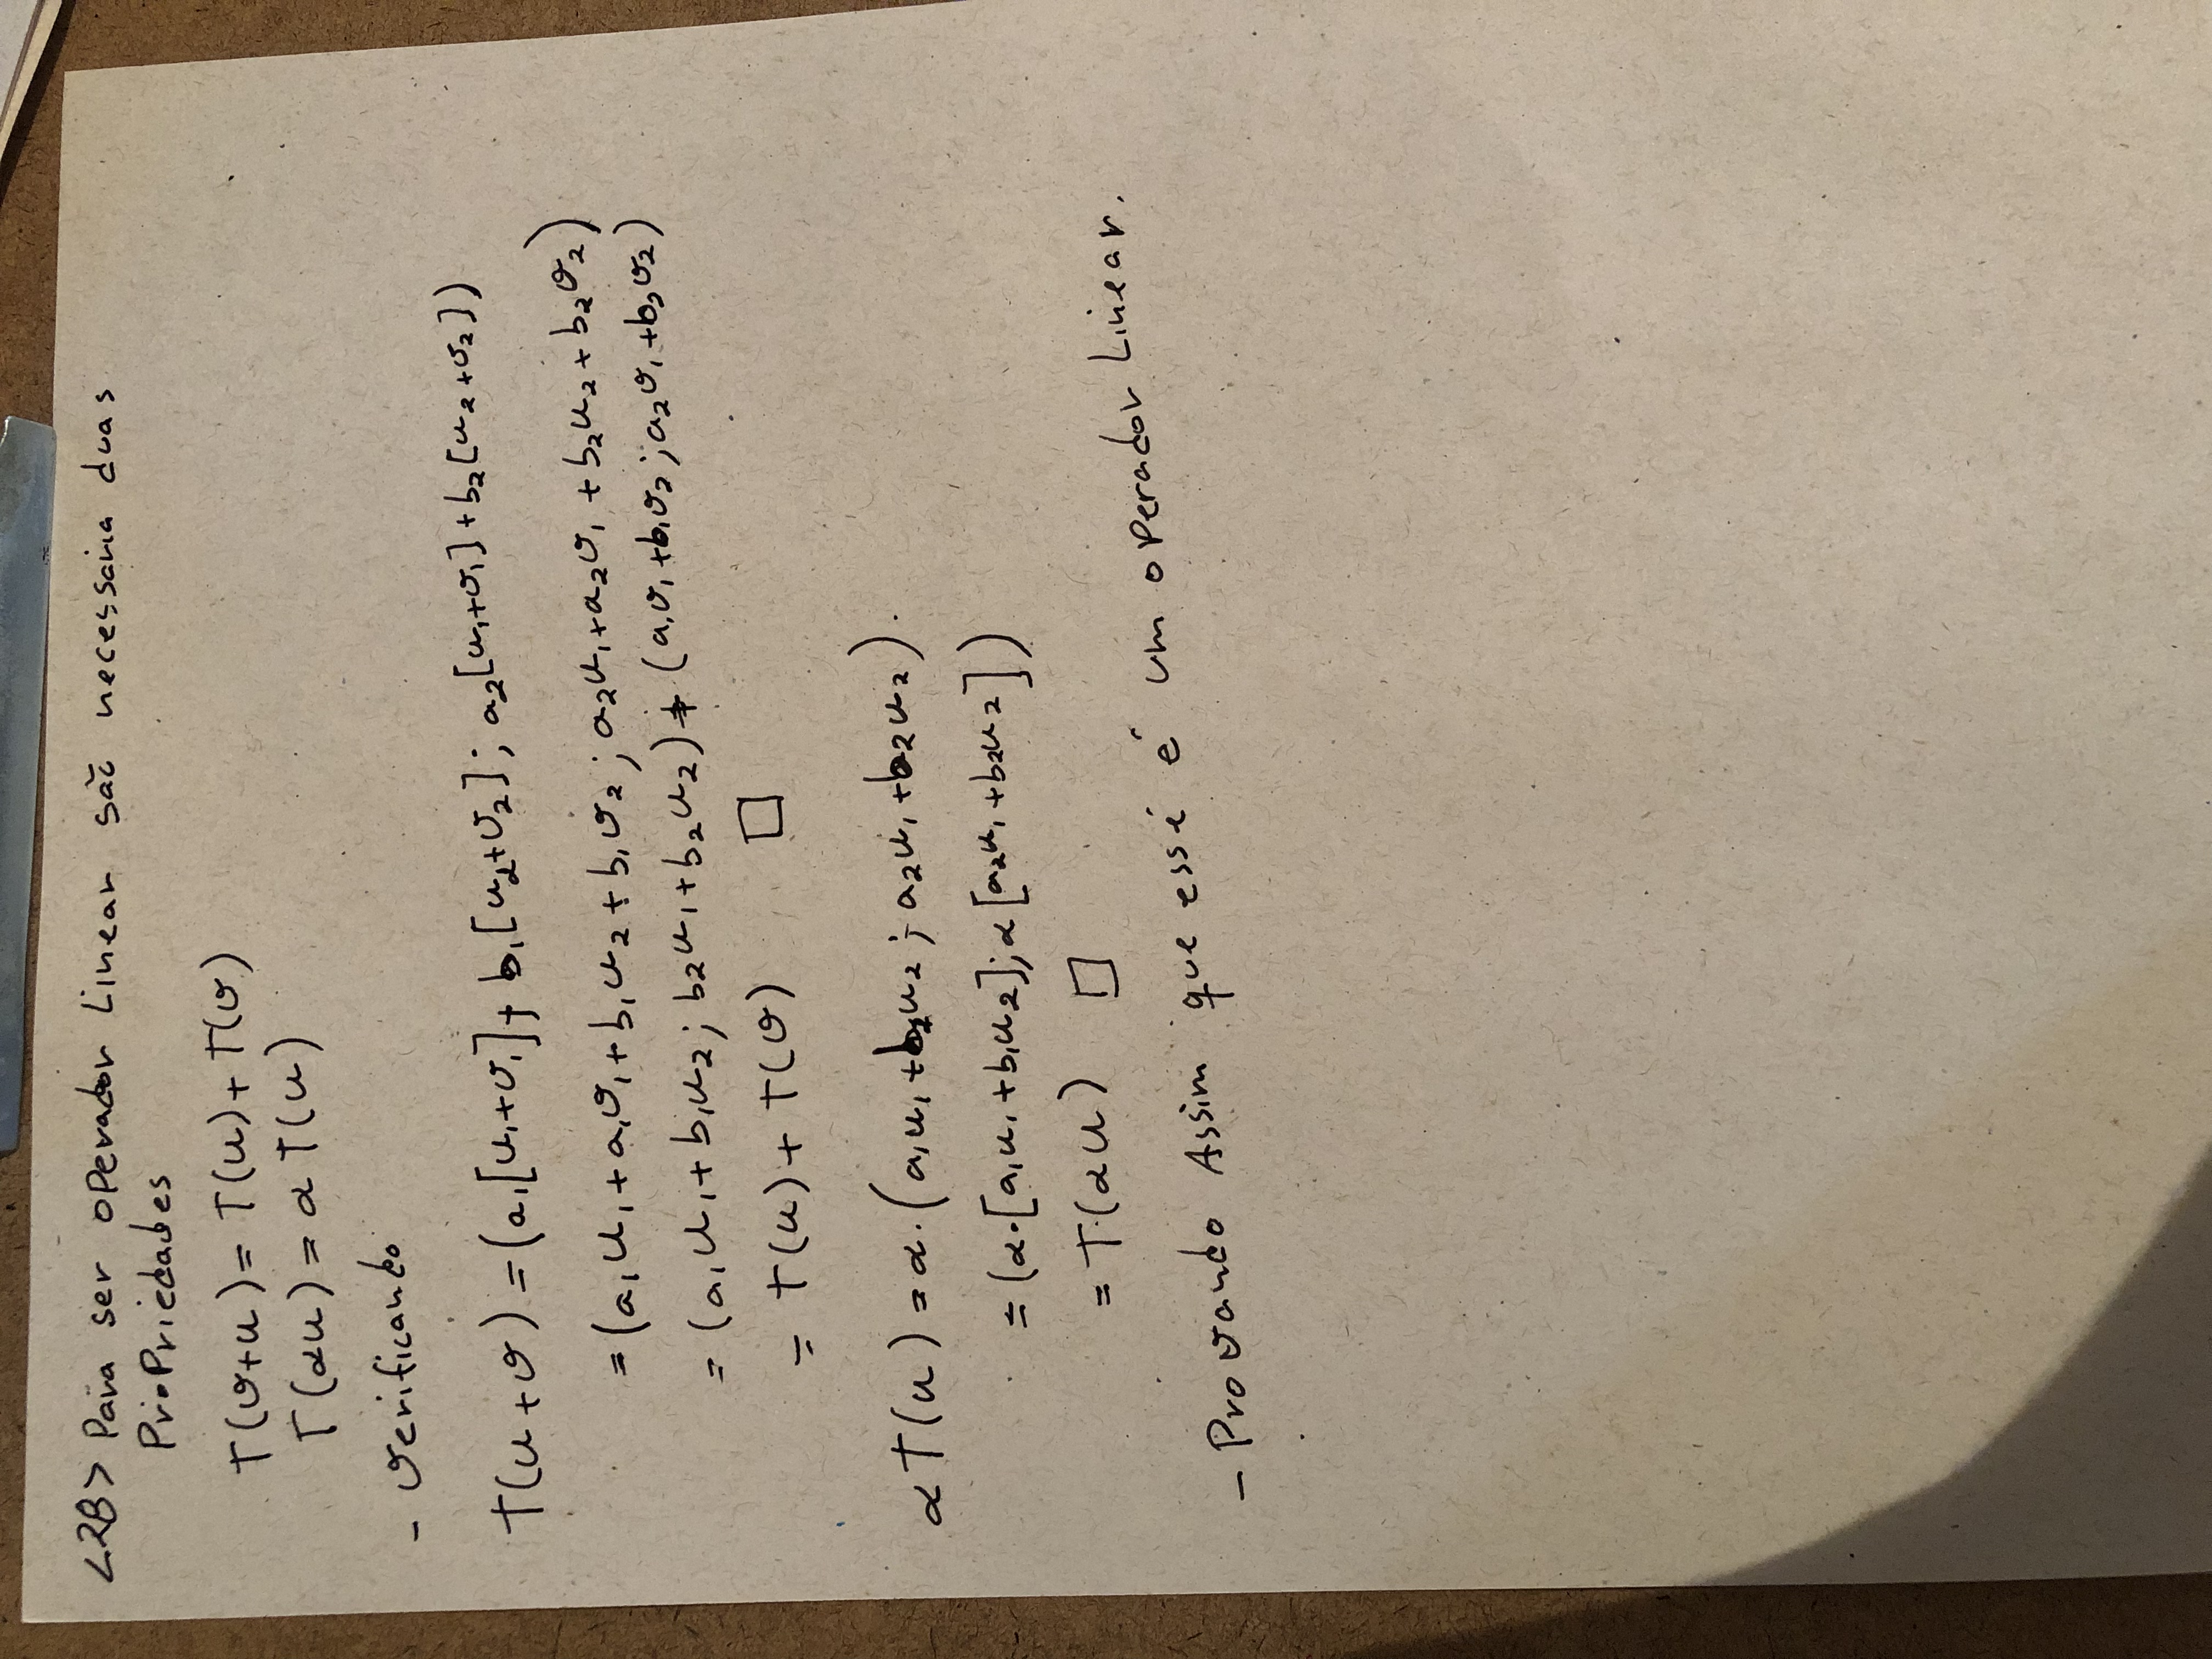 <28> Para ser operador Linear são necessaria duas
Propriedades
T(v+u) = T(u) + T(v)
T(αu) = α T(u)
- Verificando
T(u+v) = (a₁[u₁+v₁] + b₁[u₂+v₂]; a₂[u₁+v₁] + b₂[u₂+v₂])
= (a₁u₁ + a₁v₁ + b₁u₂ + b₁v₂; a₂u₁ + a₂v₁ + b₂u₂ + b₂v₂)
= (a₁u₁ + b₁u₂; b₂u₁ + b₂u₂) + (a₁v₁ + b₁v₂; a₂v₁ + b₂v₂)
= T(u) + T(v) □
αT(u) = α·(a₁u₁ + b₁u₂; a₂u₁ + b₂u₂).
= (α·[a₁u₁ + b₁u₂]; α[a₂u₁ + b₂u₂])
= T(αu) □
- Provando Assim que essé é um operador Linear.